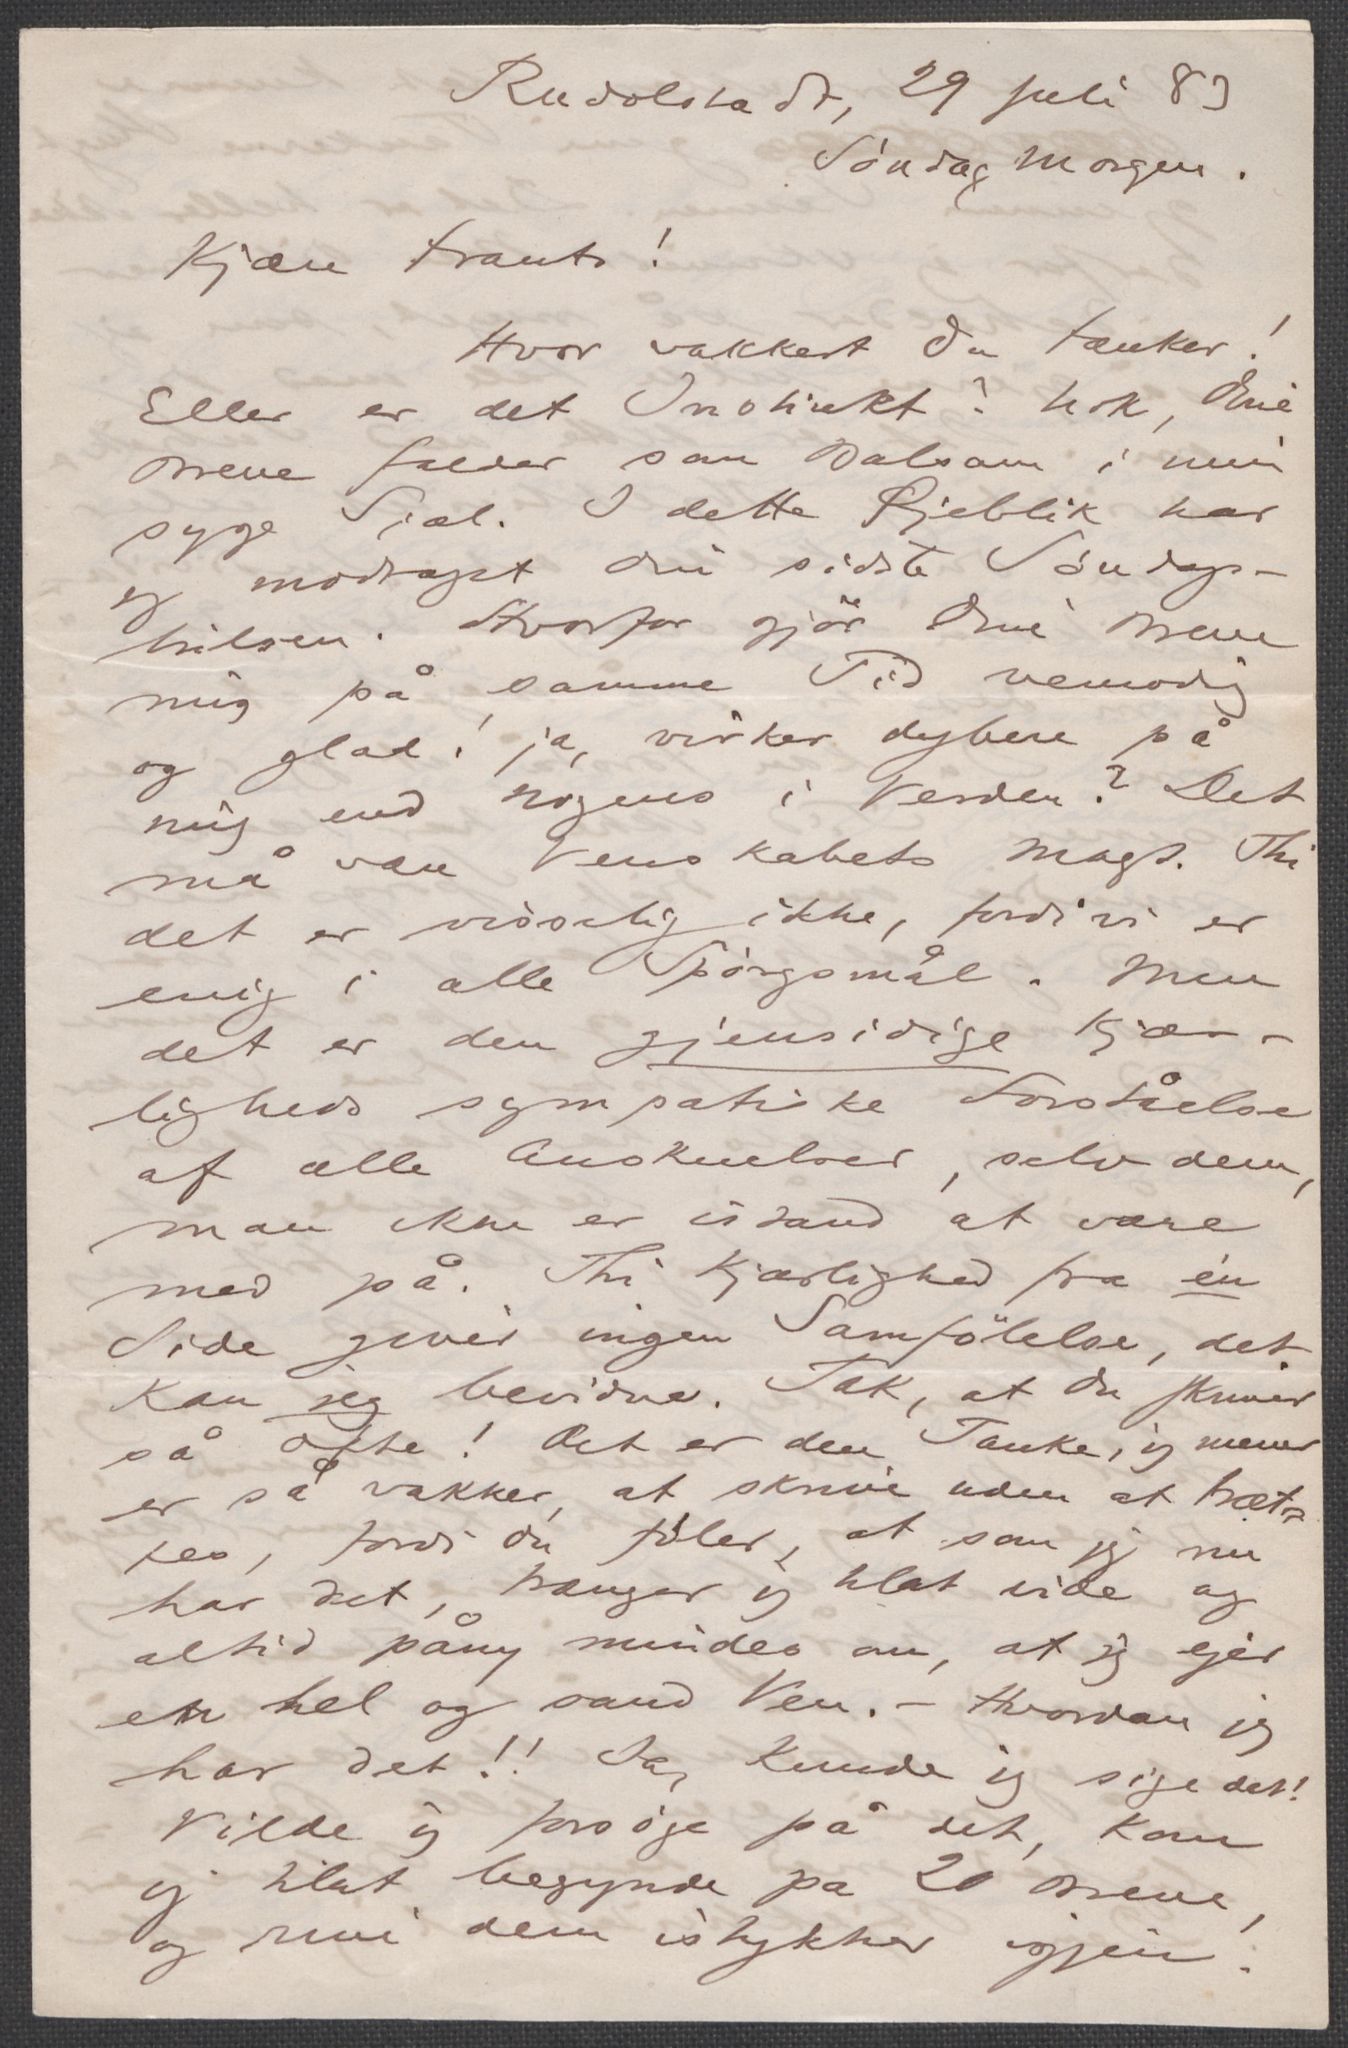 Rudolstadt, 29 Juli 83
Söndag Morgen.
Kjære Frants!
Hvor vakkert du tænker!
Eller er det Instinkt? Nok, dine
Breve falder som Balsam i min
syge Sjæl. I dette Øjeblik har
jg modtaget din sidste Söndags-
hilsen. Hvorfor gjör dine Breve
mig på samme Tid vemodig
og glad! ja, virker dybere på
mig end nogens i Verden? Det
må være Venskabets Magt. Thi
det er visselig ikke, fordi vi er
enig i alle Spörgsmål. Men
det er den gjensidige Kjær-
ligheds sympatiske Forståelse
af alle Anskuelser, selv dem,
man ikke er istand at være
med på. Thi Kjærlighed fra én
Side giver ingen Samfölelse, det
kan jeg bevidne. Tak, at du skriver
så ofte! Det er den Tanke, jg mener
er så vakker, at skrive uden at træt-
tes, fordi du föler, at som jg nu
har det, trænger jg blot vide og
altid påny mindes om, at jg ejer
en hel og sand Ven. – Hvordan jg
har det!! Ja, kunde jg sige det!
Vilde jg forsöge på det, kom
jg blot begynde på 20 Breve,
og rive dem istykker igjen!